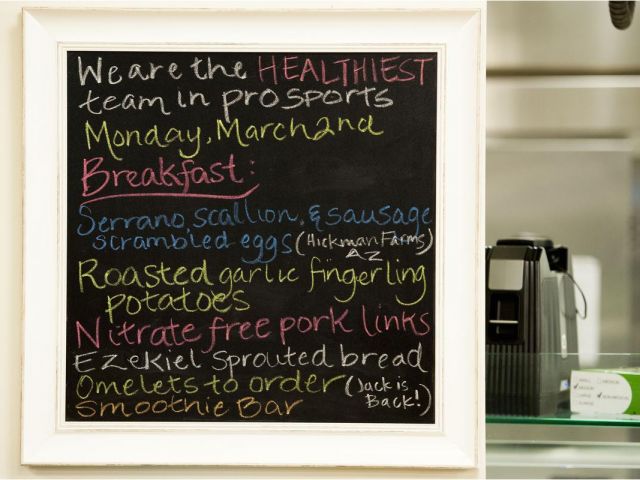 We are the HEALTHIEST
team in pro sports
Monday, March 2nd
Breakfast:
Serrano, scallion, & sausage
scrambled eggs (Hickman Farms)
AZ
Roasted garlic fingerling
potatoes
Nitrate free pork links
Ezekiel Sprouted bread
Omelets to order (Jack is
Back!)
Smoothie Bar